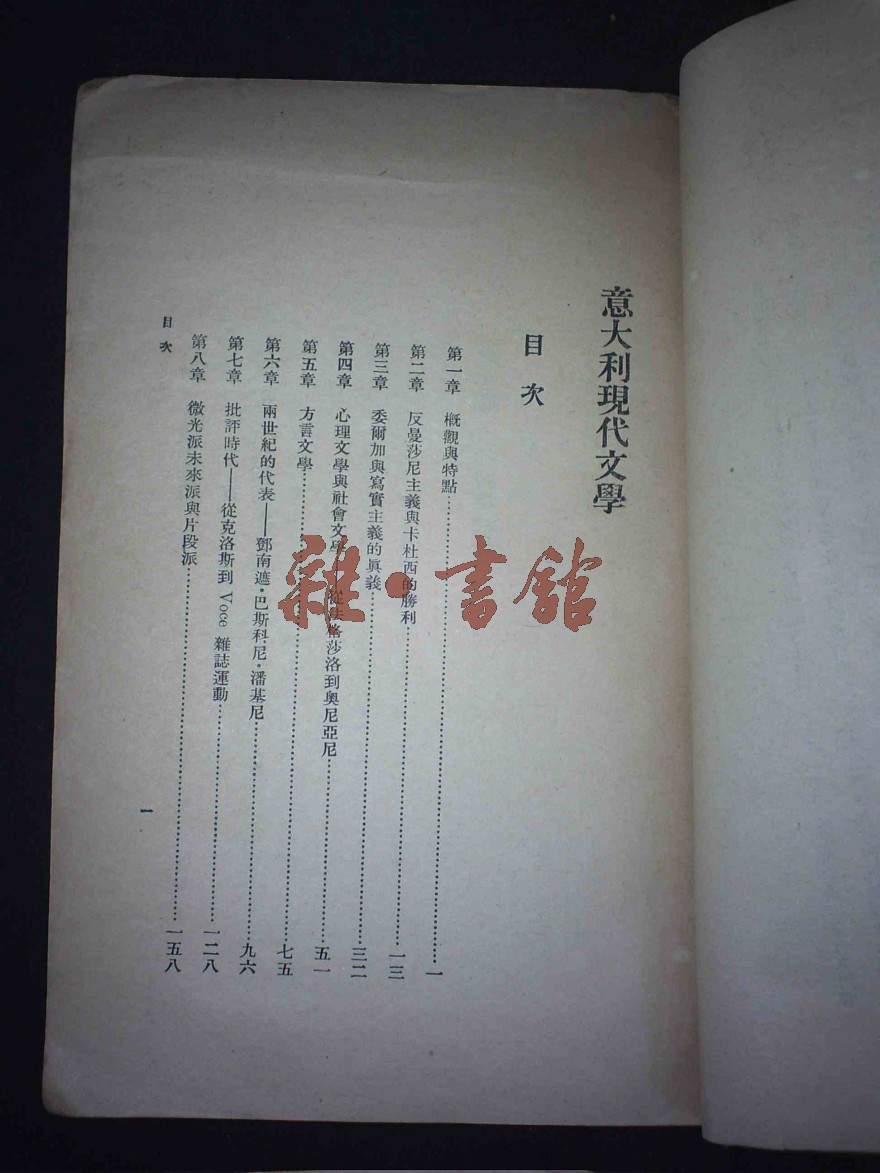 意大利現代文學
目次
第一章 概觀與特點……一
第二章 反曼莎尼主義與卡杜西的勝利……一三
第三章 委爾加與寫實主義的眞義……三二
第四章 心理文學與社會文學——從法格莎洛到奧尼亞尼……五一
第五章 方言文學……七五
第六章 兩世紀的代表——鄧南遮·巴斯科尼·潘基尼……九六
第七章 批評時代——從克洛斯到 Voce 雜誌運動……一二八
第八章 微光派未來派與片段派……一五八
目次
一
雜·書館